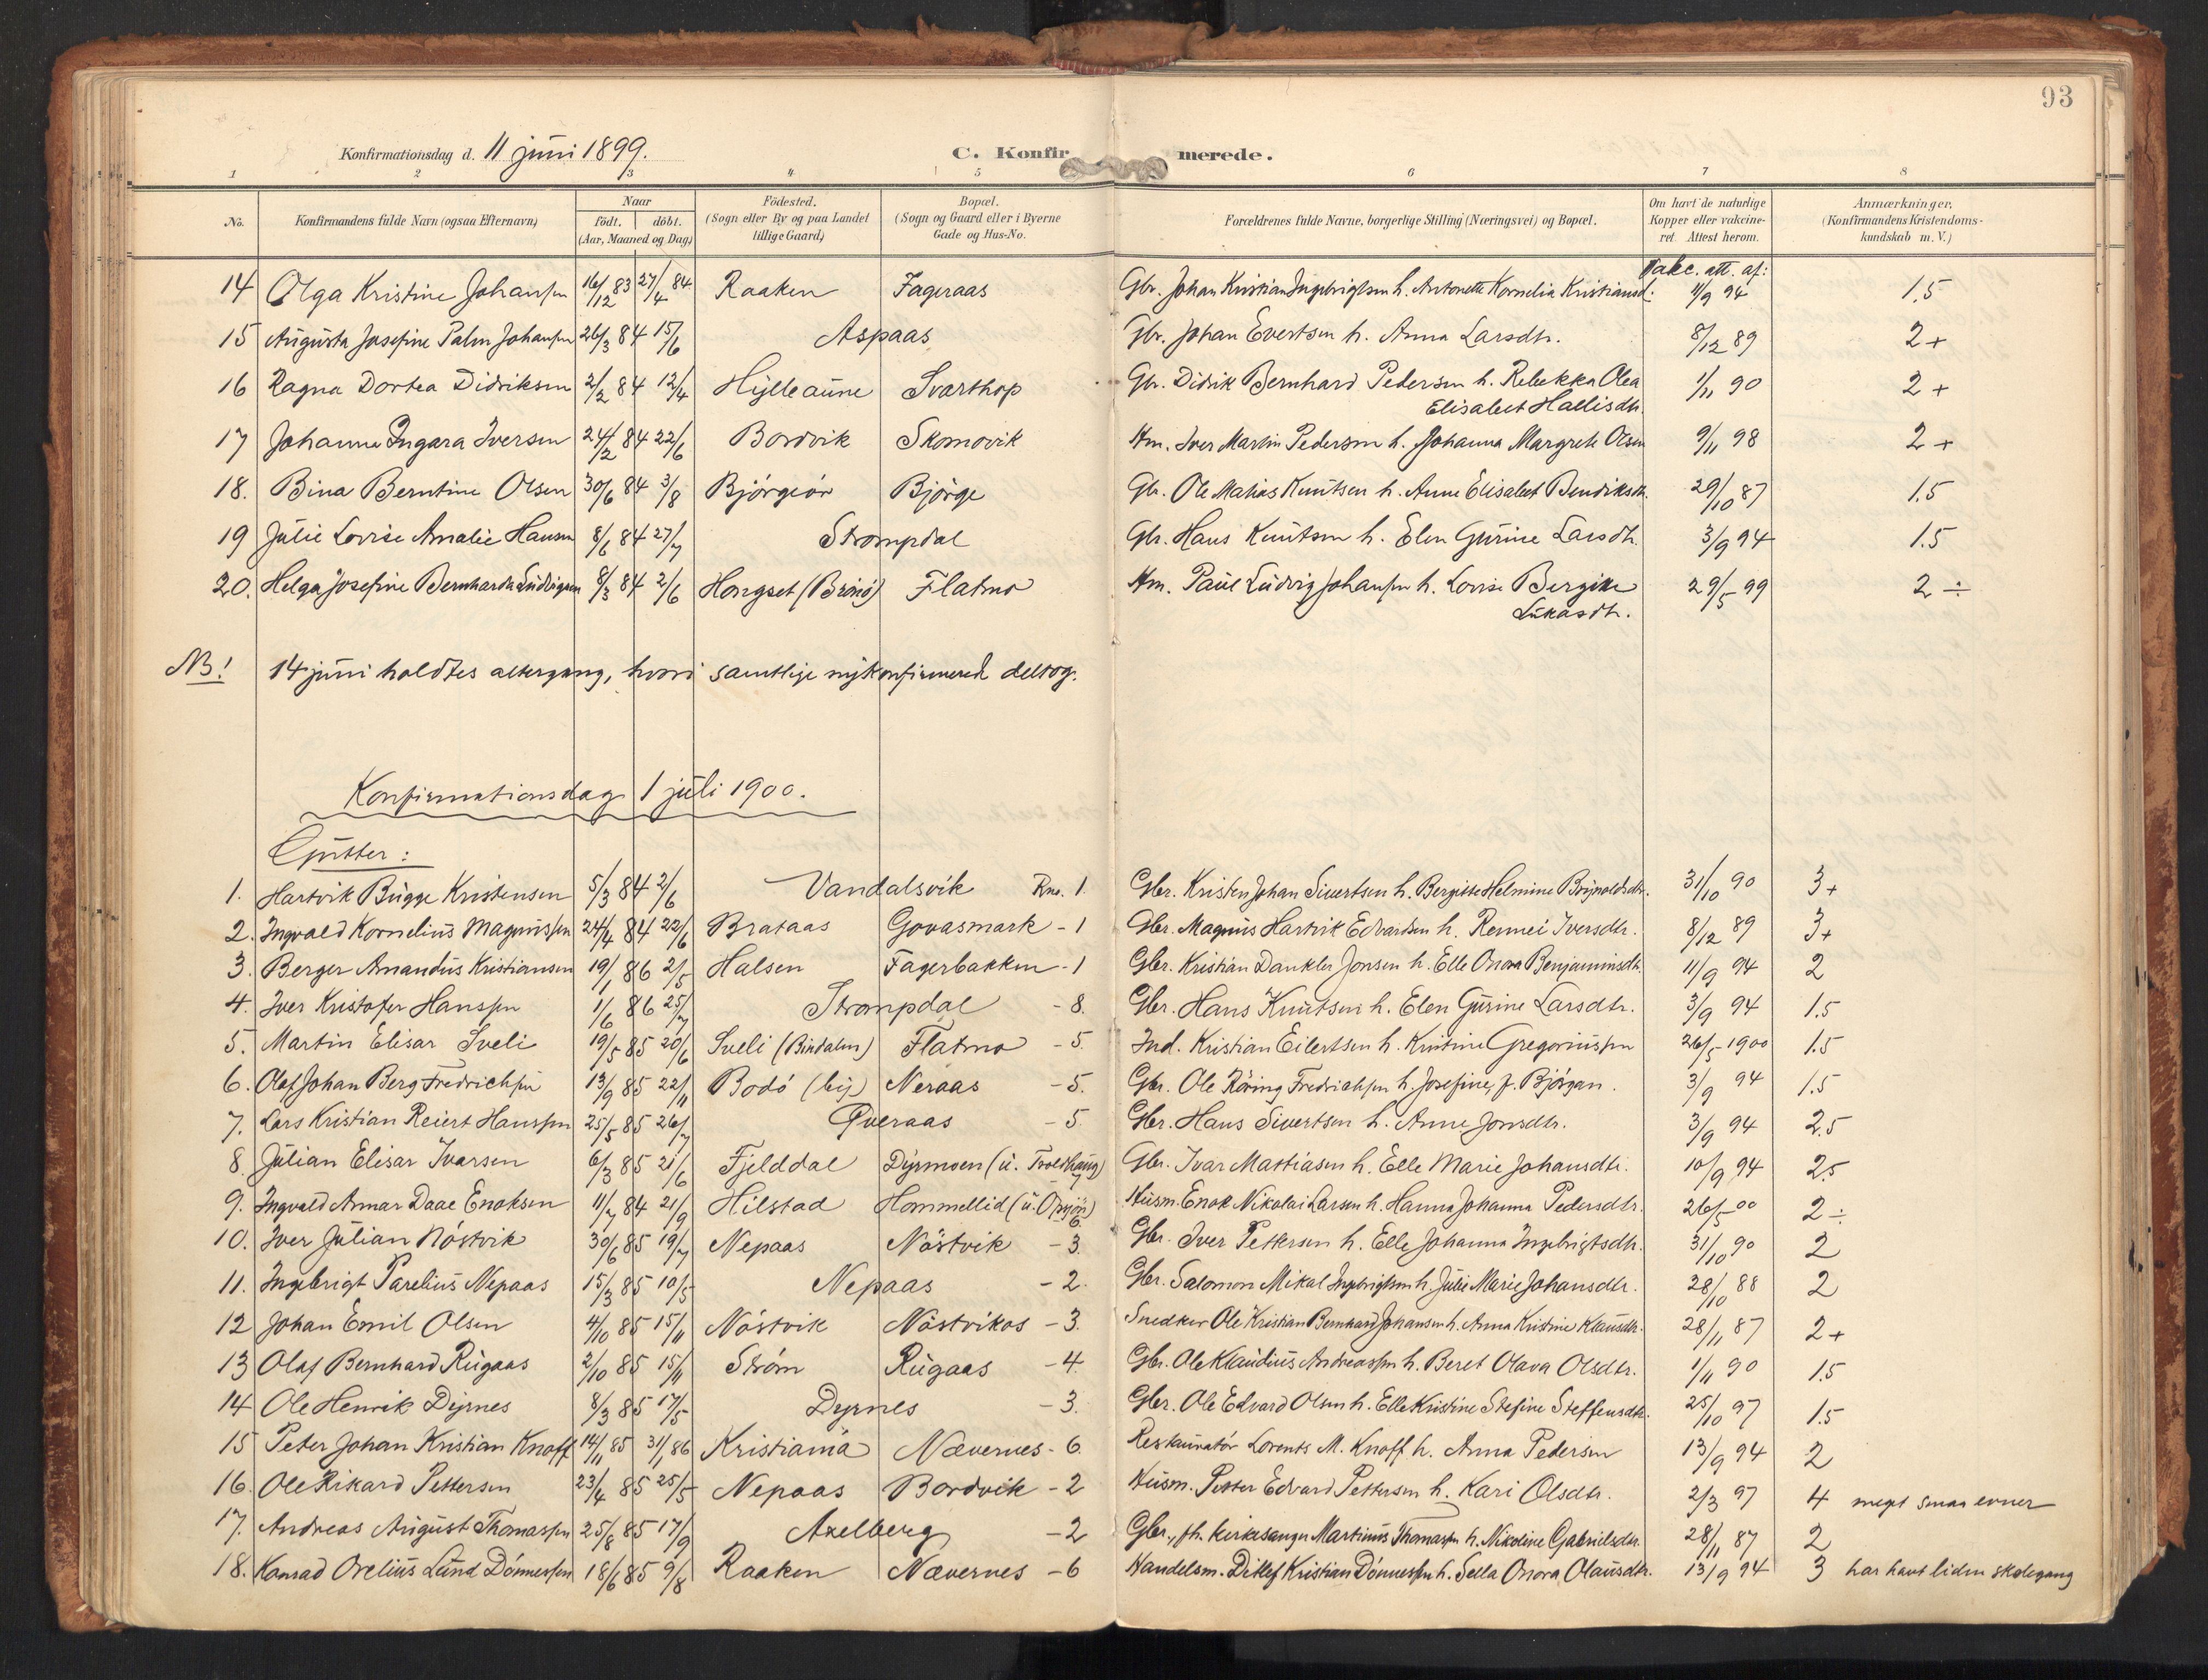 93
Konfirmationsdag d. 11 juni 1899. C. Konfirmerede.
1 2 3 4 5 6 7 8
No. Konfirmandens fulde Navn (ogsaa Efternavn) Naar født. døbt. (Aar, Maaned og Dag) Fødested. (Sogn eller By og paa Landet tillige Gaard) Bopæl. (Sogn og Gaard eller i Byerne Gade og Hus-No. Forældrenes fulde Navne, borgerlige Stilling (Næringsvei) og Bopæl. Om havt de naturlige Kopper eller vakcineret. Attest herom. Anmærkninger, (Konfirmandens Kristendomskundskab m. V.)
Vakc. att. af:
14 Olga Kristine Johansen 16/12 83 27/4 84 Raaken Fageraas Gbr. Johan Kristian Ingebrigtsen h. Antonette Kornelia Kristiansd. 11/9 94 1.5
15 Augusta Josefine Palm Johansen 26/3 84 15/6 Aspaas Gbr. Johan Evertsen h. Anna Larsdtr. 8/12 89 2+
16 Ragna Dortea Didriksen 2/2 84 12/4 Hylleaune Svarthop Gbr. Didrik Bernhard Pedersen h. Rebekka Olea 1/11 90 2+
Elisabet Hallisdtr.
17 Johanna Ingara Iversen 24/2 84 22/6 Bordvik Skomovik Hm. Iver Martin Pedersen h. Johanna Margrete Olsen 9/11 98 2+
18. Bina Berntine Olsen 30/6 84 3/8 Bjørgeør Bjørge Gbr. Ole Matias Knutsen h. Anne Elisabet Bendiksdtr. 29/10 87 1.5
19 Julie Lovise Amalie Hansen 8/6 84 27/7 Strompdal Gbr. Hans Knutsen h. Elen Gurine Larsdtr. 3/9 94 1.5
20. Helga Josefine Bernharda Ludvigsen 8/3 84 2/6 Hongset (Brönö) Flatmo Hm. Paul Ludvig Johansen h. Lovise Bergitte 29/5 99 2 ÷
Lukasdtr.
NB! 14 juni holdtes altergang, hvori samtlige nykonfirmerede deltog.
Konfirmationsdag 1 juli 1900.
Gutter:
1. Hartvik Bugge Kristensen 5/3 84 2/6 Vandalsvik Rno. 1. Gbr. Kristen Johan Sivertsen h. Bergitte Helmine 31/10 90 3+
2. Ingvald Kornelius Magnussen 24/4 84 22/6 Brataas Govasmark - 1 Gbr. Magnus Hartvik Edvardsen h. Rennei Iversdtr. 8/12 89 3+
3. Berger Amandus Kristiansen 19/1 86 2/5 Halsen Fagerbakken - 1 Gbr. Kristian Dankler Jonsen h. Elle Onora Benjaminsdtr. 11/9 94 2
4. Iver Kristofer Hanssen 1/6 86 25/7 Strompdal - 8. Gbr. Hans Knutsen h. Elen Gurine Larsdtr. 3/9 94 1.5
5. Martin Elisar Sveli 19/5 85 20/6 Sveli (Bindalen) Flatmo - 5. Ind. Kristian Eilertsen h. Kristine Gregoriussen 26/5 1900 1.5
6. Olaf Johan Berg Fredrichsen 13/9 85 22/11 Bodö (by) Neraas - 5. Gbr. Ole Röring Fredrichsen h. Josefine, f. Björgan. 3/9 94 1.5
7. Lars Kristian Reiert Hanssen 25/5 85 26/7 Qveraas - 5. Gbr. Hans Sivertsen h. Anne Jonsdtr. 3/9 94 2.5
8. Julian Elisar Ivarsen 6/3 85 21/6 Fjelddal Dyrmoen (u. Troldhaug) 7 Gbr. Ivar Mattiasen h. Elle Marie Johansdtr. 10/9 94 2.5
9. Ingvald Annar Daae Enoksen 11/7 84 21/9 Hilstad Hommellid (u. Opsjøn) 6. Husm. Enok Nikolai Larsen h. Hanna Johanna Pedersdtr. 26/5 00 2 ÷
10. Iver Julian Nöstvik 30/6 85 19/7 Nepaas Nöstvik - 3. Gbr. Iver Pettersen h. Elle Johanna Ingebrigtsdtr. 31/10 90 2
11. Ingebrigt Parelius Nepaas 15/3 85 10/5 Nepaas - 2. Gbr. Salomon Mikal Ingebrigtsen h. Julie Marie Johansdtr. 28/10 88 2
12 Johan Emil Olsen 4/10 85 15/11 Nöstvik Nöstvikos - 3. Snedker Ole Kristian Bernhard Johansen h. Anna Kristine Klausdtr. 28/11 87 2+
13 Olaf Bernhard Rugaas 2/10 85 15/11 Ström Rugaas - 4. Gbr. Ole Klaudius Andreassen h. Beret Olava Olsdtr. 1/11 90 1.5
14 Ole Henrik Dyrnes 8/3 85 17/5 Dyrnes - 3. Gbr. Ole Edvard Olsen h. Elle Kristine Stefine Steffensdtr. 25/10 97 1.5
15 Peter Johan Kristian Knoff 14/11 85 31/1 86 Kristiania Nævernes - 6. Restauratör Lorents M. Knoff h. Anna Pedersen 13/9 94 2
16. Ole Rikard Pettersen 23/4 85 25/5 Nepaas Bordvik - 2 Husm. Petter Edvard Pettersen h. Kari Olsdtr. 2/3 97 4 meget smaa evner
17. Andreas August Thomassen 25/8 85 17/9 Axelberg - 2 Gbr., fh. kirkesanger Martinus Thomassen h. Nikoline Gabrielsdtr. 28/11 87 2
18. Konrad Orelius Lund Dönnessen 18/6 85 9/8 Raaken Nævernes - 6 Handelsm. Ditlef Kristian Dönnessen h. Sella Onora Olausdtr. 13/9 94 3 har havt liden skolegang